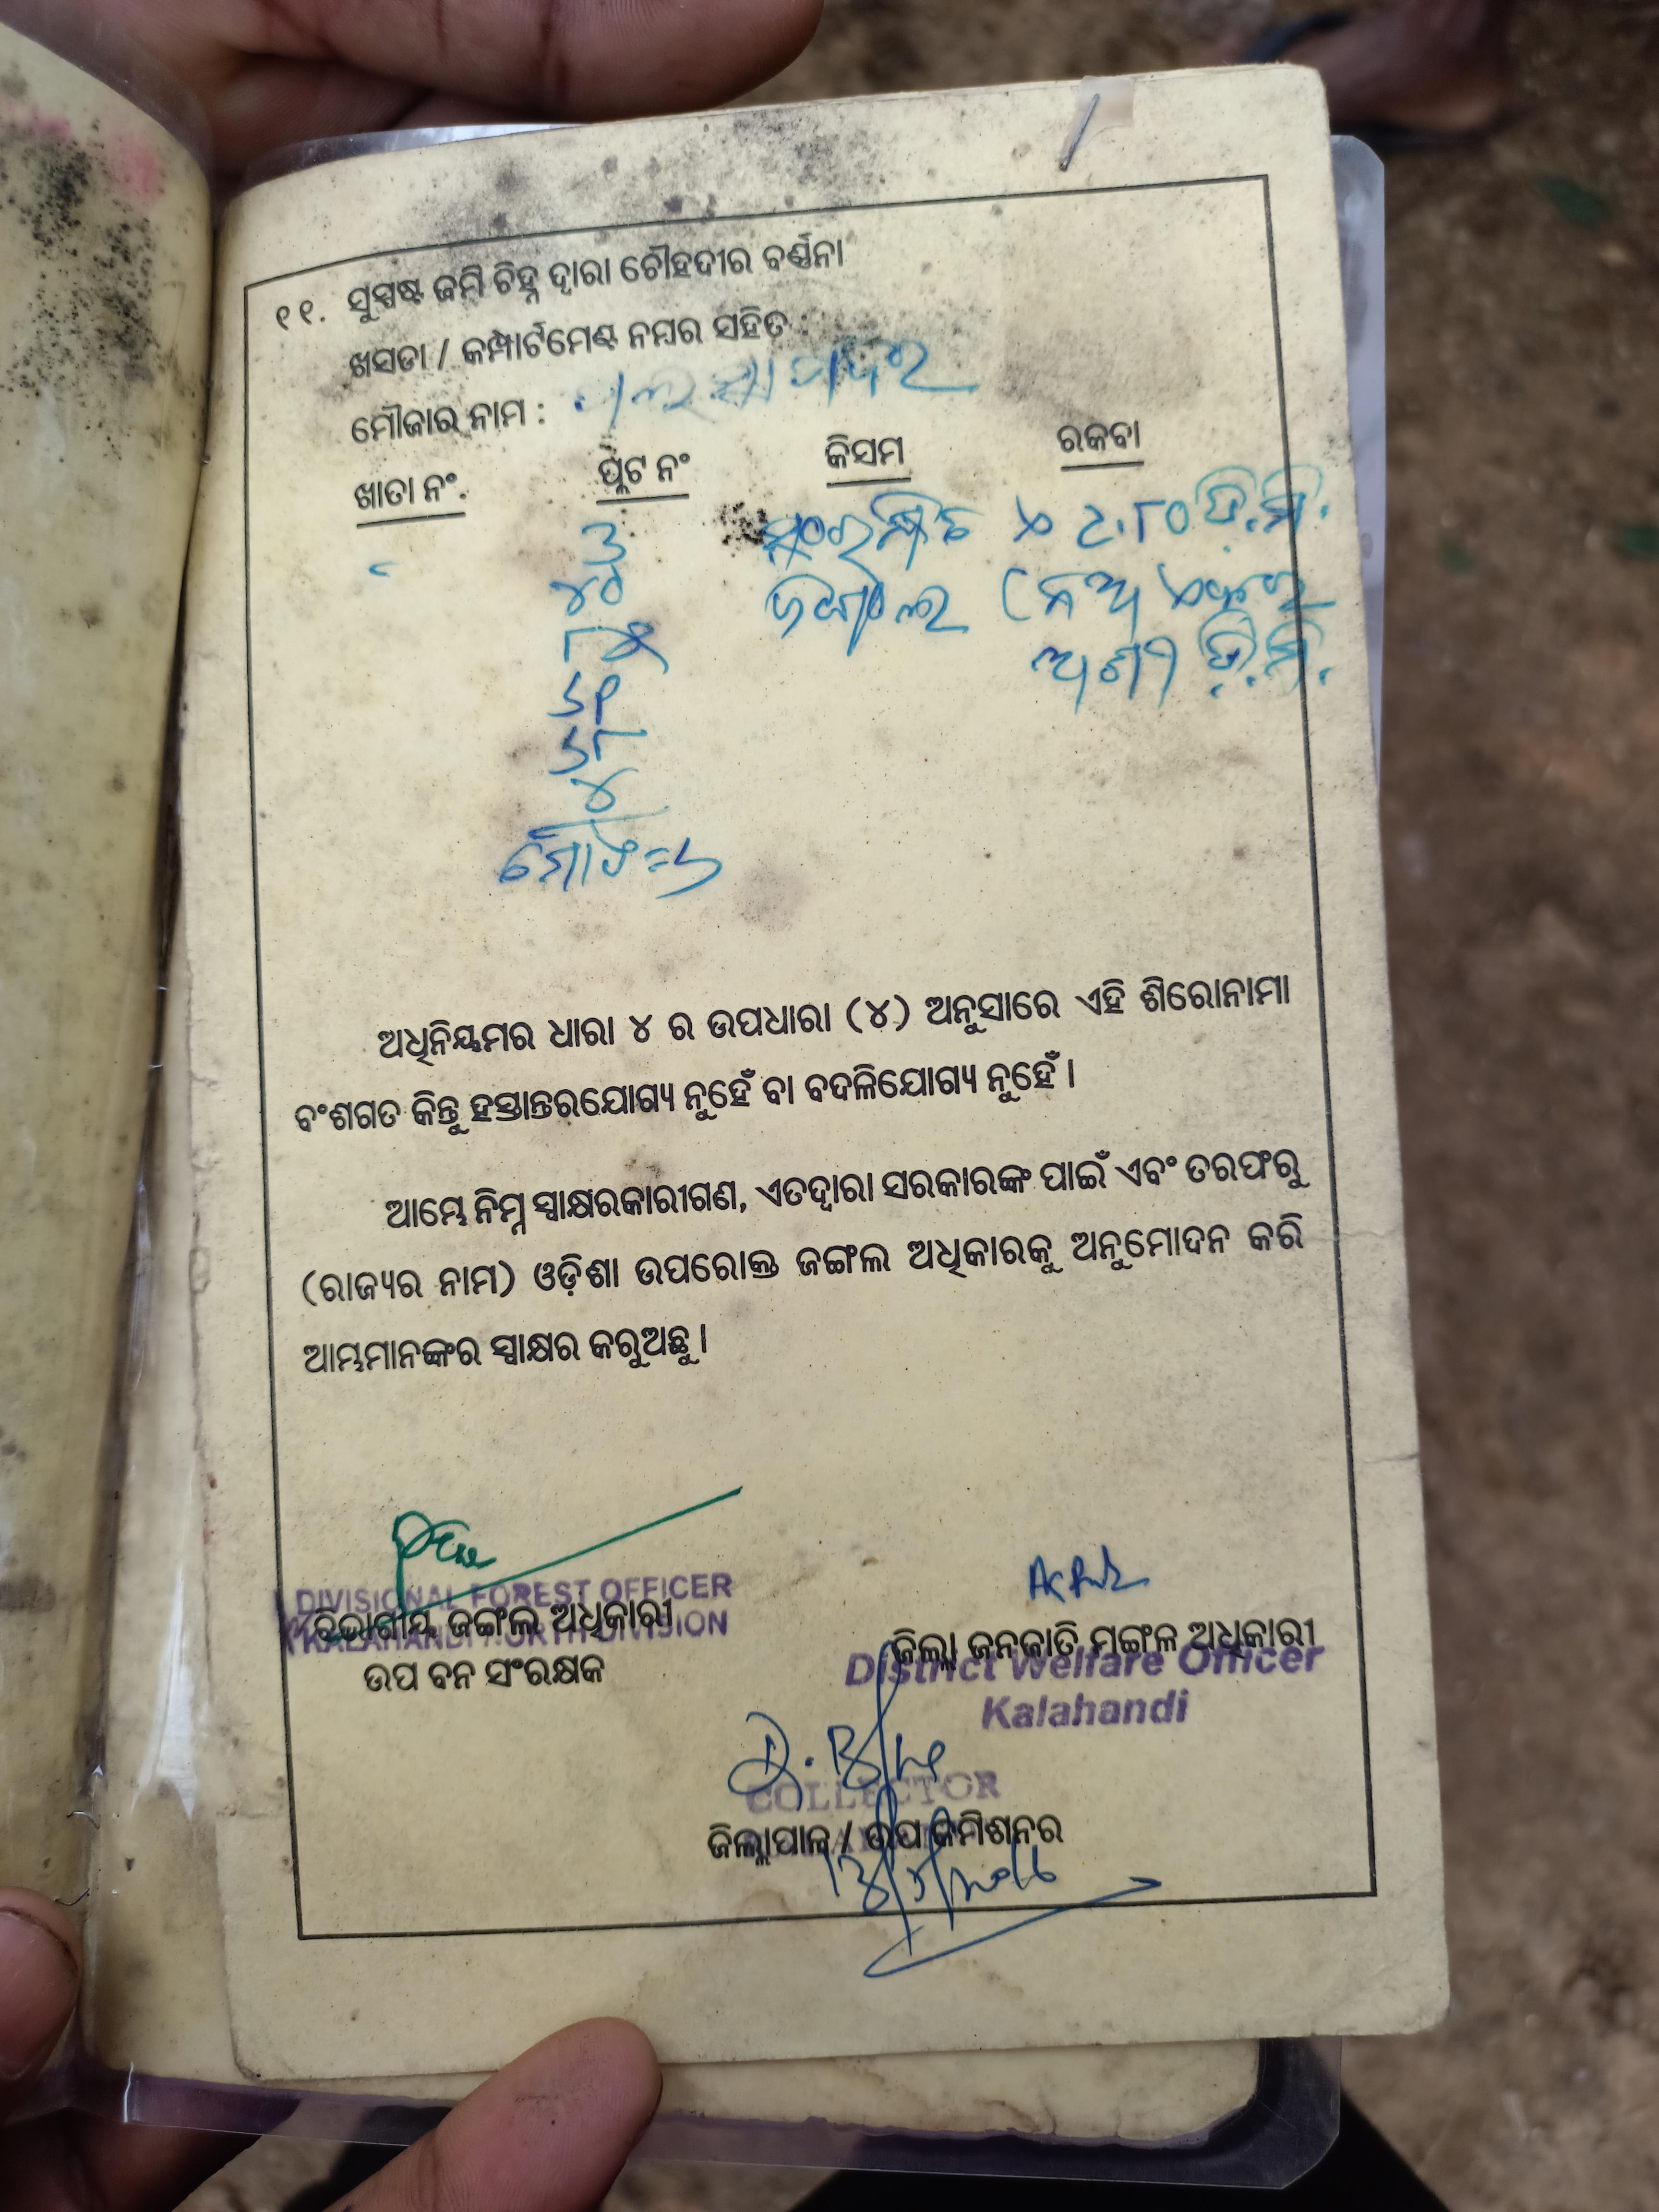 ୧୧. ସୁସ୍ପଷ୍ଟ ଜମି ଚିହ୍ନ ଦ୍ୱାରା ଚୌହଦୀର ବର୍ଣ୍ଣନା
ଖସଡା / କମ୍ପାର୍ଟମେଣ୍ଟ ନମ୍ବର ସହିତ :
ମୌଜାର ନାମ :
ଖାତା ନଂ. ପ୍ଲଟ ନଂ କିସମ ରକବା
୩ ସଂରକ୍ଷିତ ୯ ଏ.୮୦ ଡି.ମି.
୪୦ ଜଙ୍ଗଲ (ନଅ ଏକର
ଅଶୀ ଡି.ମି.
୬୧
୬୮
୪
ମୋଟ=୬
ଅଧିନିୟମର ଧାରା ୪ ର ଉପଧାରା (୪) ଅନୁସାରେ ଏହି ଶିରୋନାମା
ବଂଶଗତ କିନ୍ତୁ ହସ୍ତାନ୍ତରଯୋଗ୍ୟ ନୁହେଁ ବା ବଦଳିଯୋଗ୍ୟ ନୁହେଁ ।
ଆମ୍ଭେ ନିମ୍ନ ସ୍ୱାକ୍ଷରକାରୀଗଣ, ଏତଦ୍ୱାରା ସରକାରଙ୍କ ପାଇଁ ଏବଂ ତରଫରୁ
(ରାଜ୍ୟର ନାମ) ଓଡ଼ିଶା ଉପରୋକ୍ତ ଜଙ୍ଗଲ ଅଧିକାରକୁ ଅନୁମୋଦନ କରି
ଆମ୍ଭମାନଙ୍କର ସ୍ୱାକ୍ଷର କରୁଅଛୁ ।
DIVISIONAL FOREST OFFICER
ବିଭାଗୀୟ ଜଙ୍ଗଲ ଅଧିକାରୀ
KALAHANDI NORTH DIVISION
ଉପ ବନ ସଂରକ୍ଷକ
ଜିଲ୍ଲା ଜନଜାତି ମଙ୍ଗଳ ଅଧିକାରୀ
District Welfare Officer
Kalahandi
COLLECTOR
ଜିଲ୍ଲାପାଳ / ଉପ କମିଶନର